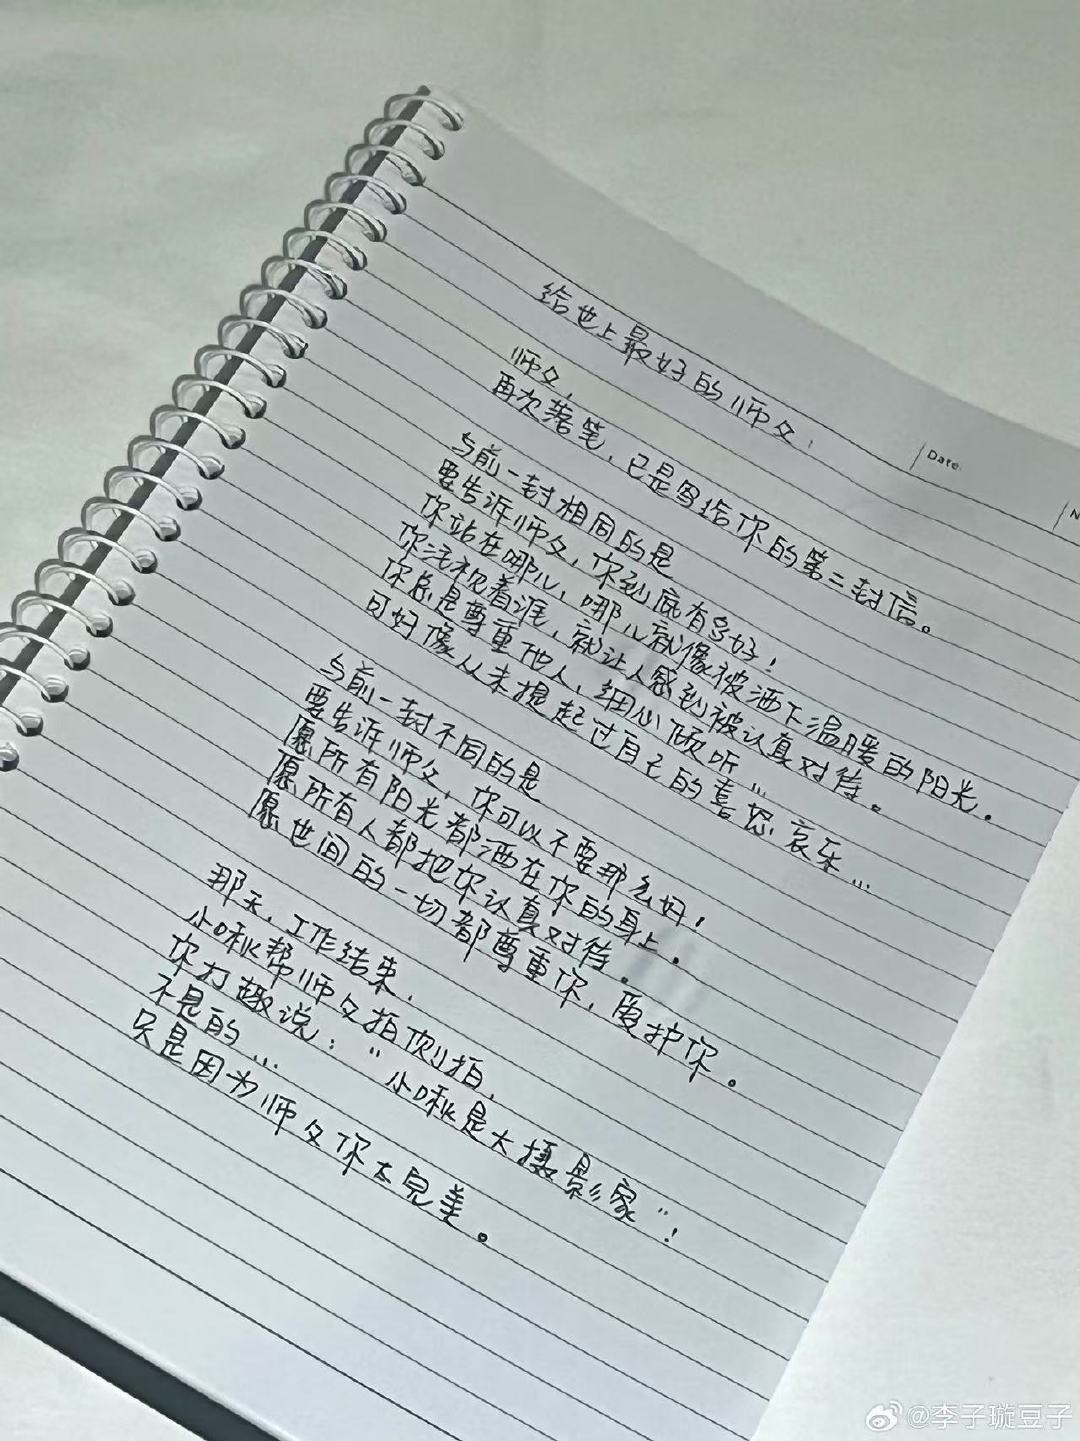 给世上最好的师父:
Date:
N
师父,
再次落笔,已是写给你的第二封信。
与前一封相同的是
要告诉师父,你到底有多好!
你站在哪儿,哪儿就像被洒下温暖的阳光。
你注视着谁,就让人感到被认真对待。
你总是尊重他人,细心倾听...
可好像从未提起过自己的喜怒哀乐...
与前一封不同的是
要告诉师父,你可以不要那么好,
愿所有阳光都洒在你的身上,
愿所有人都把你认真对待。
愿世间的一切都尊重你,爱护你。
那天,工作结束,
小啾帮师父拍侧拍,
你打趣说:“小啾是大摄影家”!
不是的...
只是因为师父你太完美。
@李子璇豆子